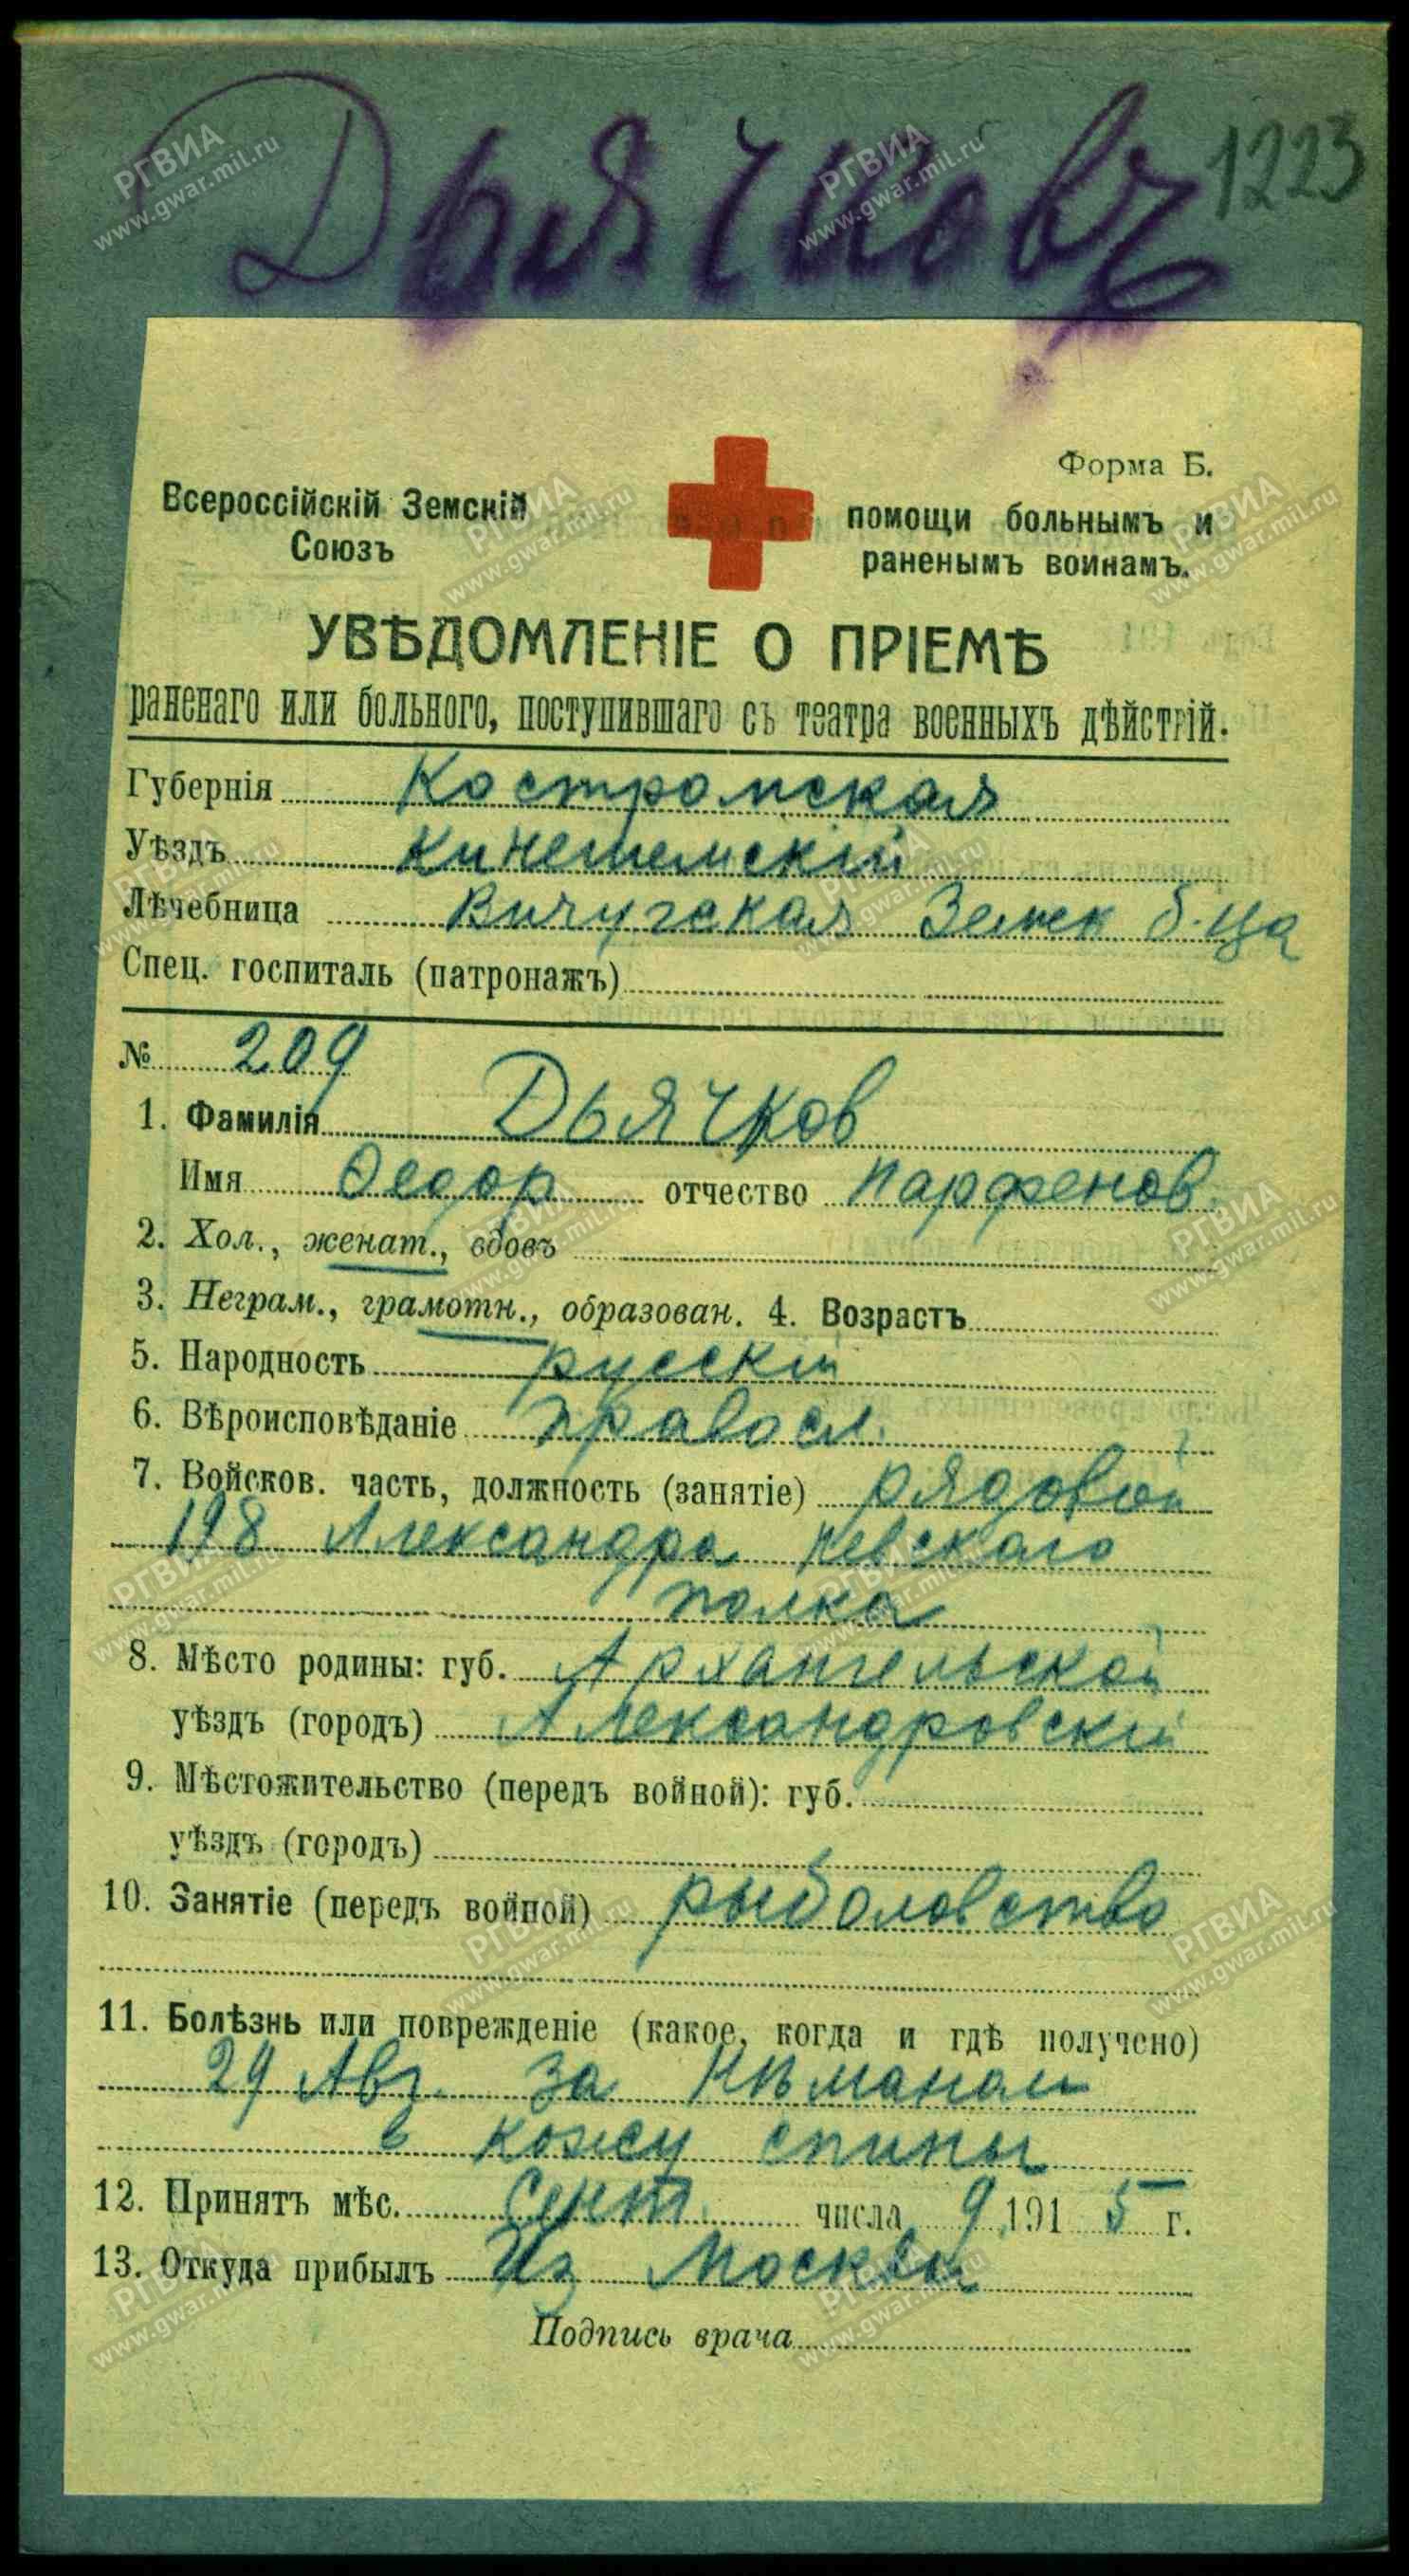 Дьячковъ 1223
Форма Б.
Всероссійскій Земскій Союзъ помощи больнымъ и раненымъ воинамъ.
УВѢДОМЛЕНІЕ О ПРІЕМѢ
раненаго или больного, поступившаго съ театра военныхъ дѣйствій.
Губернія Костромская
Уѣздъ Кинешемскій
Лѣчебница Вичугская Земск б-ца
Спец. госпиталь (патронажъ)
№ 209
1. Фамилія Дьячков
Имя Федор отчество Парфенов
2. Хол., женат., вдовъ
3. Неграм., грамотн., образован. 4. Возрастъ
5. Народность русскій
6. Вѣроисповѣданіе правосл.
7. Войсков. часть, должность (занятіе) рядовой
198 Александра Невскаго
полка
8. Мѣсто родины: губ. Архангельской
уѣздъ (городъ) Александровскій
9. Мѣстожительство (передъ войной): губ.
уѣздъ (городъ)
10. Занятіе (передъ войной) рыболовство
11. Болѣзнь или поврежденіе (какое, когда и гдѣ получено)
29 Авг. за Нѣманом
в кожу спины
12. Принятъ мѣс. Сент. числа 9 1915 г.
13. Откуда прибылъ Из Москвы
Подпись врача
РГВИА
www.gwar.mil.ru